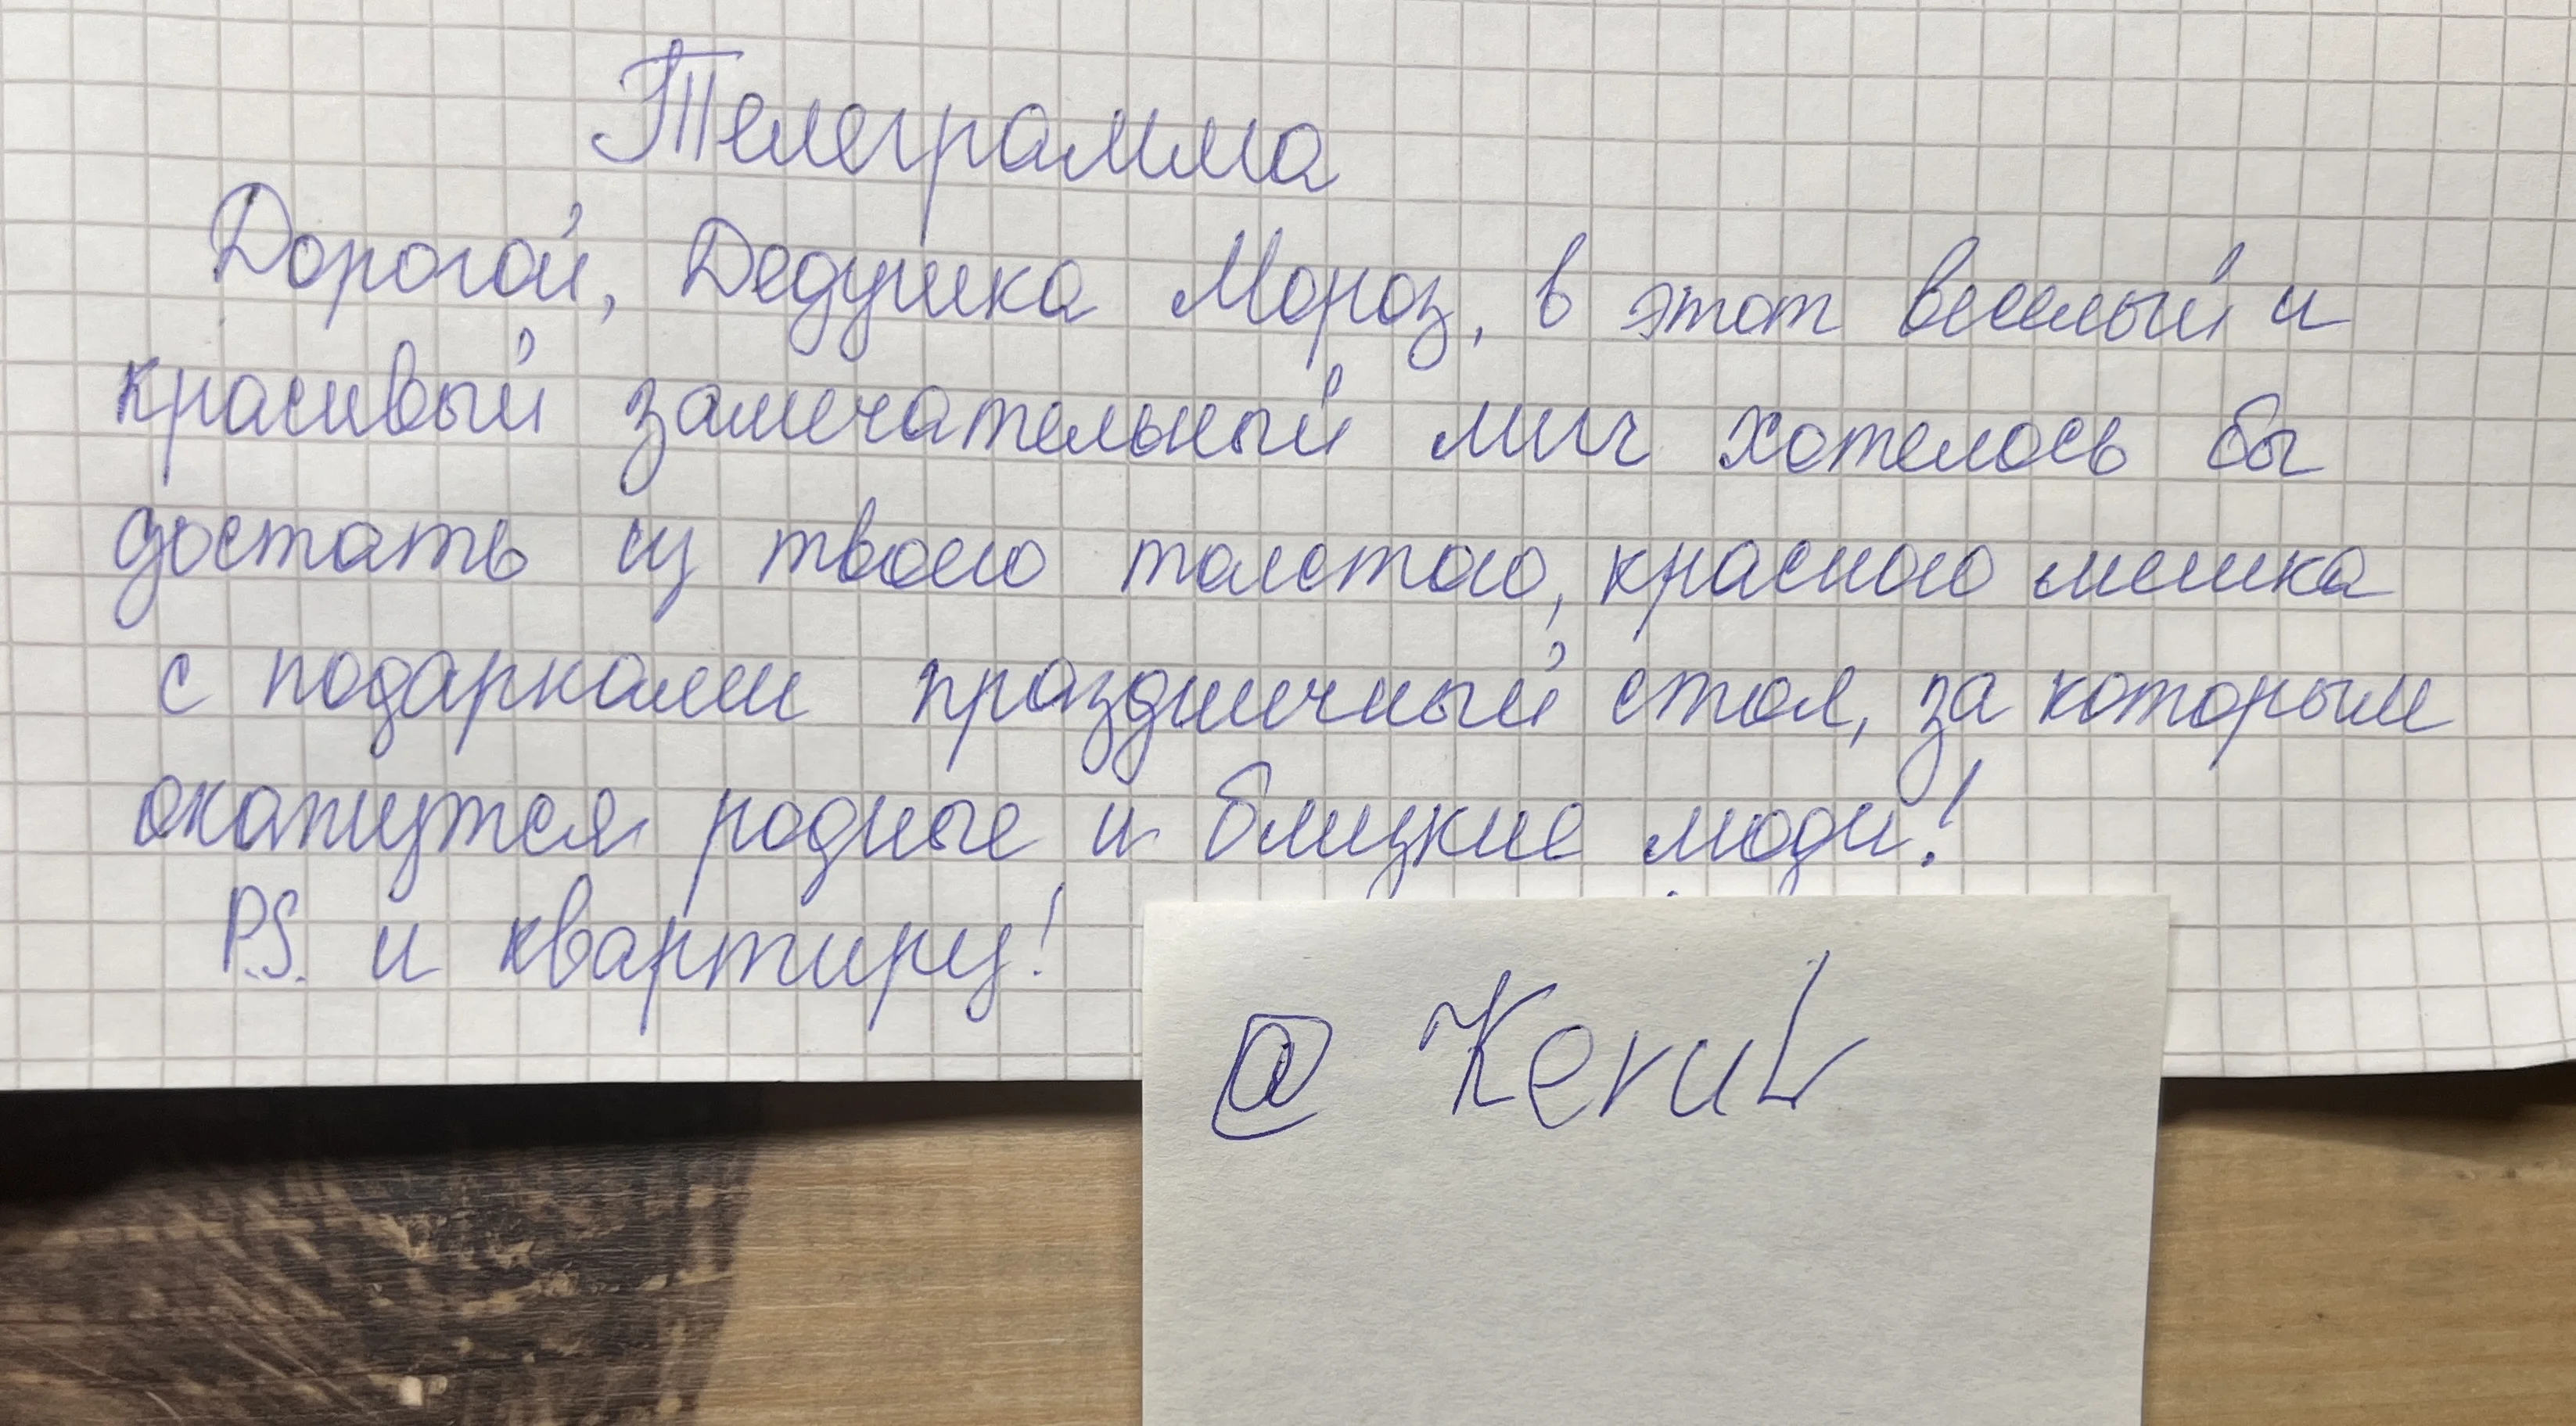 Телеграмма
Дорогой, Дедушка Мороз, в этот веселый и
красивый замечательный миг хотелось бы
достать из твоего толстого, красного мешка
с подарками праздничный стол, за которым
окажутся родные и близкие люди!
P.S. и квартиру!
@ Kerub